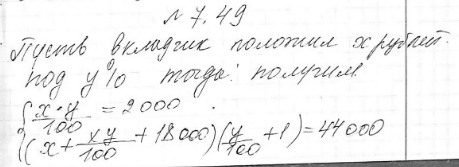 № 7.49
Пусть вкладчик положил x рублей
под y% тогда: получим
{ x·y/100 = 2000
(x + xy/100 + 18000)(y/100 + 1) = 44000